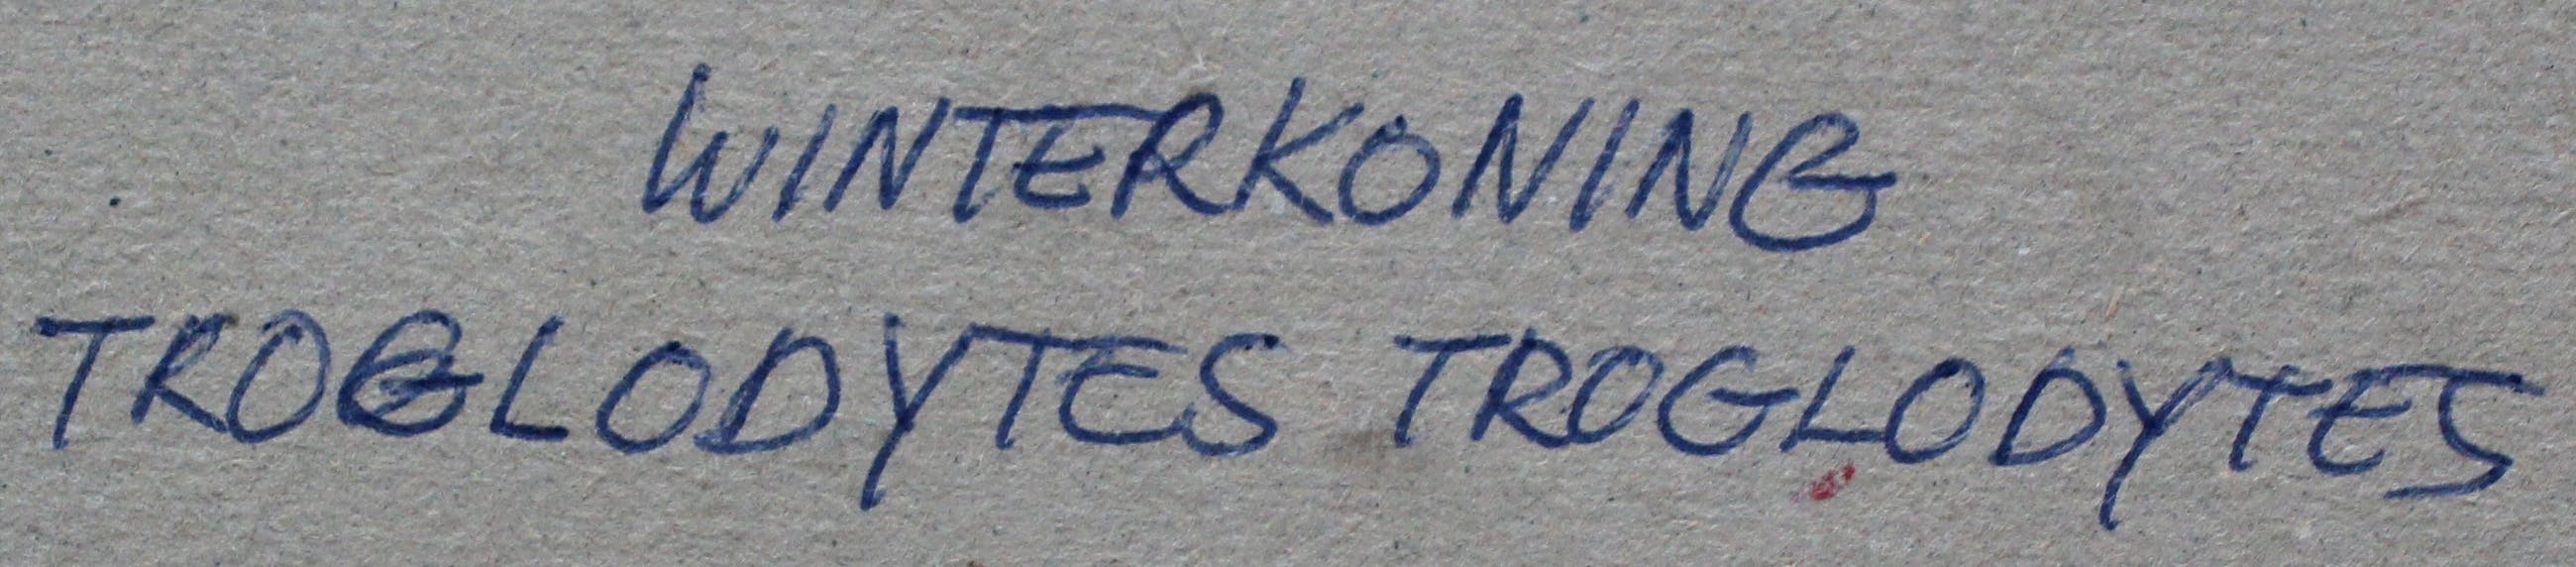 WINTERKONING
TROGLODYTES TROGLODYTES